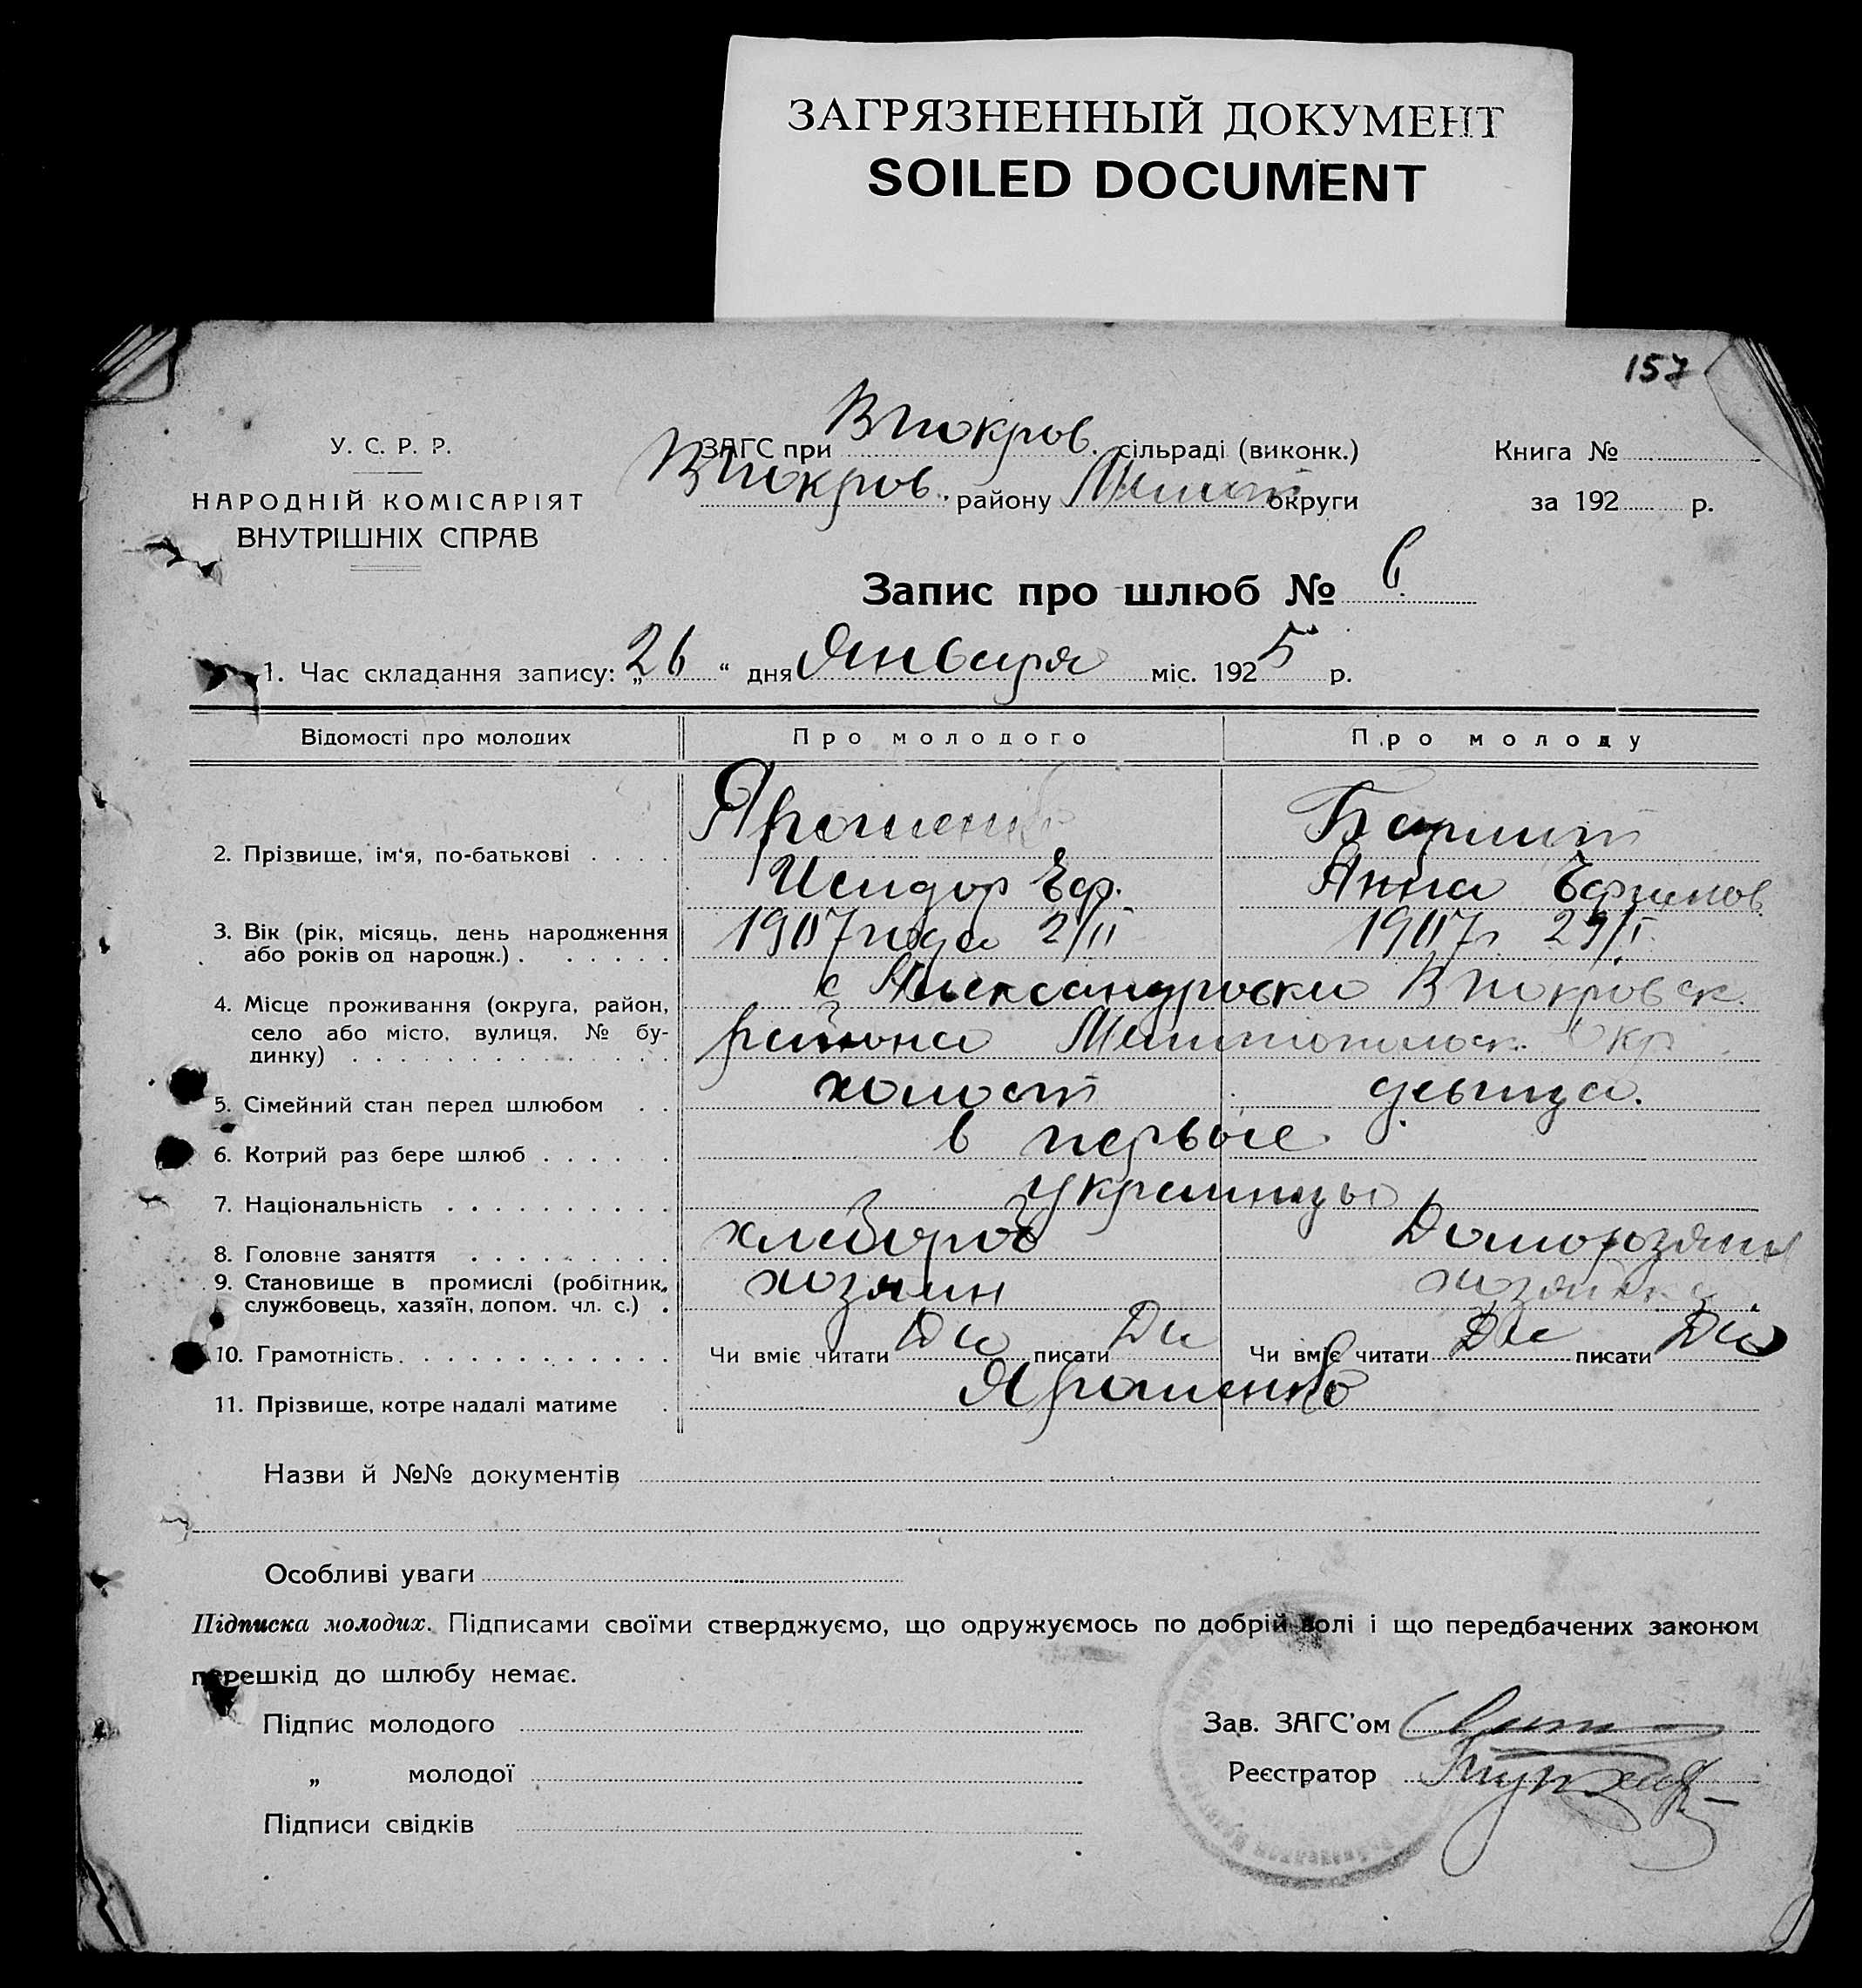 ЗАГРЯЗНЕННЫЙ ДОКУМЕНТ
SOILED DOCUMENT
157
У. С. Р. Р.
НАРОДНІЙ КОМІСАРІЯТ
ВНУТРІШНІХ СПРАВ
ЗАГС при ВПокров. сільраді (виконк.)
ВПокров. району Мелит округи
Книга №
за 192 р.
Запис про шлюб № 6.
1. Час складання запису: „26“ дня Января міс. 1925 р.
Відомості про молодих Про молодого Про молоду
2. Прізвище, ім‘я, по-батькові Ярошенко
Исидор Еф. Анна Ефимов
3. Вік (рік, місяць, день народження або років од народж.) 1907 года 2/II 1907 г. 29/I
4. Місце проживання (округа, район, село або місто, вулиця, № будинку) с Александровки ВПокровск.
района Мелитопольск. Окр
5. Сімейний стан перед шлюбом холост девица.
6. Котрий раз бере шлюб в первые
7. Національність украинцы
8. Головне заняття хлебороб
9. Становище в промислі (робітник, службовець, хазяїн, допом. чл. с.) хозяин хозяйка
10. Грамотність Чи вміє читати Да писати Да Чи вміє читати Да писати Да
11. Прізвище, котре надалі матиме Ярошенко
Назви й №№ документів
Особливі уваги
Підписка молодих. Підписами своїми стверджуємо, що одружуємось по добрій волі і що передбачених законом
перешкід до шлюбу немає.
Підпис молодого
„ молодої
Підписи свідків
Зав. ЗАГС’ом
Реєстратор